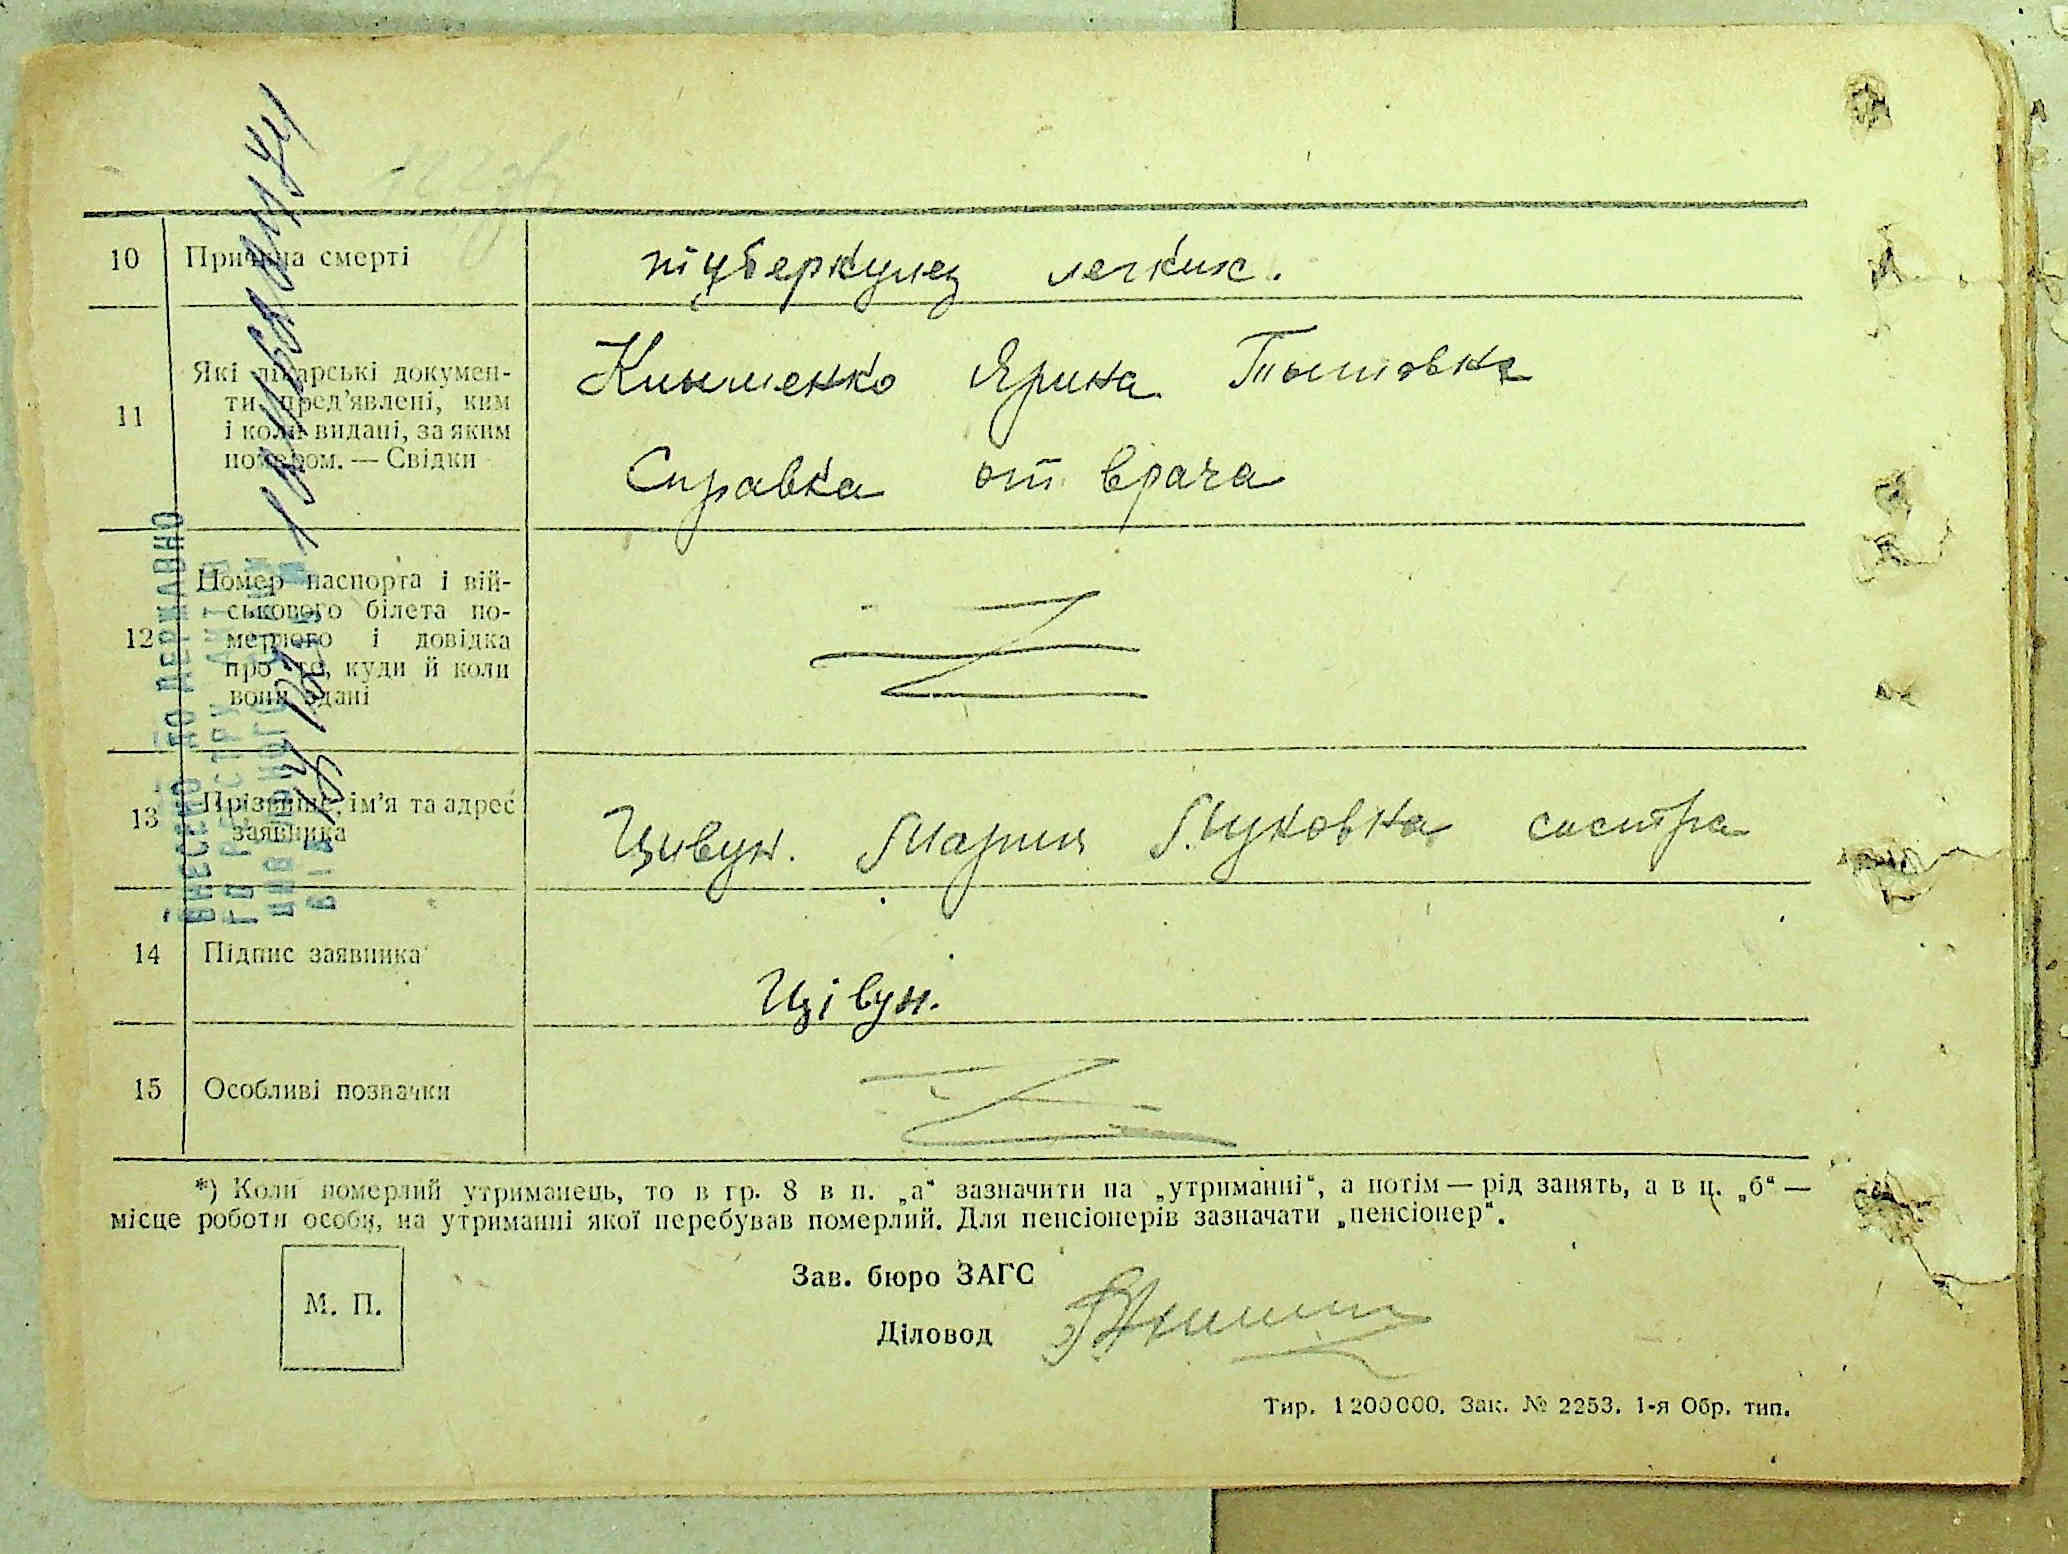 10 Причина смерті туберкулез легких.
11 Які лікарські докумен-
ти пред'явлені, ким
і коли видані, за яким
номером. — Свідки
Ярина
Справка от врача
12 Номер паспорта і вій-
ськового білета по-
мерлого і довідка
про те, куди й коли
вони здані
13 Прізвище, ім'я та адрес
заявника
Цивун. Мария сестра
14 Підпис заявника
Цівун.
15 Особливі позначки
*) Коли померлий утриманець, то в гр. 8 в п. „а“ зазначити на „утриманні“, а потім — рід занять, а в ц. „б“ —
місце роботи особи, на утриманні якої перебував померлий. Для пенсіонерів зазначати „пенсіонер“.
М. П.
Зав. бюро ЗАГС
Діловод
Тир. 1200000. Зак. № 2253. 1-я Обр. тип.
ВНЕСЕНО ДО ДЕРЖАВНО
ГО РЕЄСТРУ АКТІВ